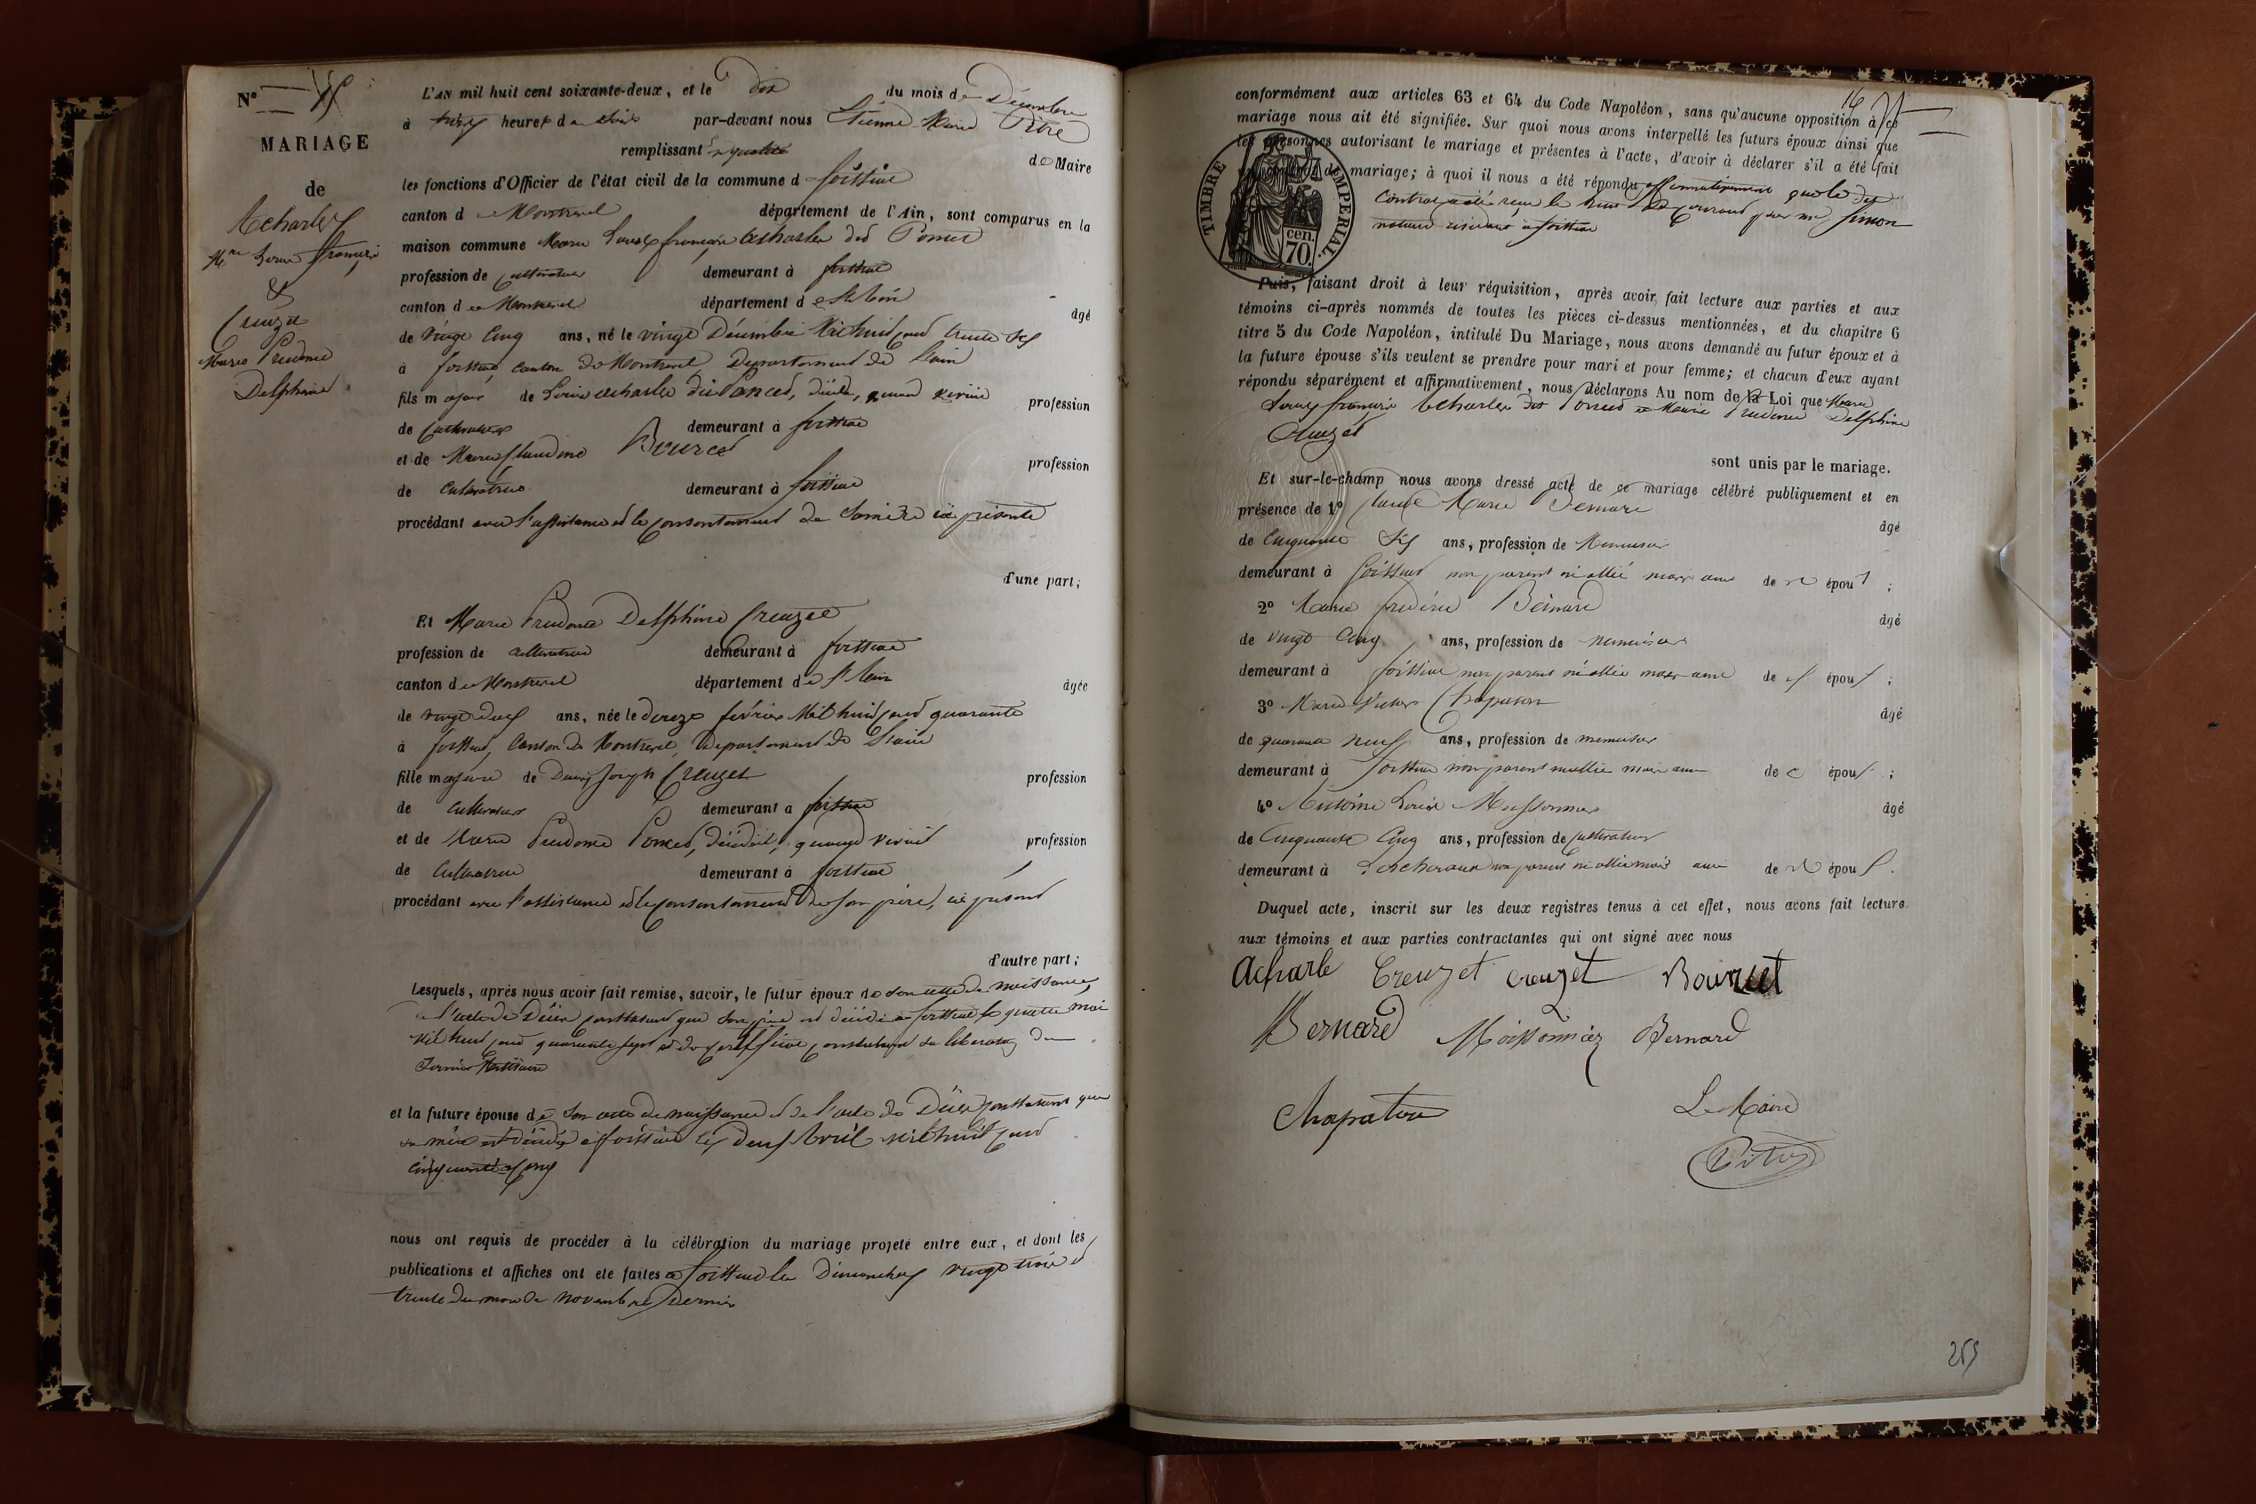 N° 15
MARIAGE
de
Acharles
Marie Prudence
Delphine
L'AN mil huit cent soixante-deux, et le dix du mois de Décembre
à heures du soir par-devant nous Etienne Marie Pitre
remplissant en qualité de Maire
les fonctions d'Officier de l'état civil de la commune d foissiat
canton de Montrevel département de l'Ain, sont comparus en la
maison commune Marie Louis françois Acharles dit Poncet
profession de cultivateur demeurant à foissiat
canton de Montrevel département de l'Ain âgé
de vingt Cinq ans, né le vingt Décembre Mil huit cent trente six
à foissiat, canton de Montrevel Département de l'ain
fils majeur de Louis acharles dit Poncet, quand vivait profession
de Cultivateur demeurant à foissiat
et de Marie Claudine Bourcet profession
de Cultivatrice demeurant à foissiat
procédant avec l'assistance et le consentement de sa mère ici présente
d'une part;
Et Marie Prudence Delphine Creuzet
profession de cultivatrice demeurant à foissiat
canton de Montrevel département de l'Ain âgée
de vingt deux ans, née le douze février Mil huit cent quarante
à foissiat, Canton de Montrevel, Département de l'ain
fille majeure de Denis Joseph Creuzet profession
de cultivateur demeurant à foissiat
et de Marie Prudence Poncet, décédée, quand vivait profession
de Cultivatrice demeurant à foissiat
procédant avec l'assistance et le consentement de son père, ici présent
d'autre part;
Lesquels, après nous avoir fait remise, savoir, le futur époux de son acte de naissance,
de l'acte de Décès constatant que son père est décédé à foissiat le quatre mai
Mil huit cent quarante sept et du certificat constatant sa libération du
service Militaire
et la future épouse de son acte de naissance et de l'acte de Décès constatant que
sa mère est décédée à foissiat le deux Avril Mil huit cent
cinquante cinq
nous ont requis de procéder à la célébration du mariage projeté entre eux, et dont les
publications et affiches ont été faites à foissiat les Dimanches vingt trois et
trente du mois de novembre dernier
conformément aux articles 63 et 64 du Code Napoléon, sans qu'aucune opposition à ce
mariage nous ait été signifiée. Sur quoi nous avons interpellé les futurs époux ainsi que
les personnes autorisant le mariage et présentes à l'acte, d'avoir à déclarer s'il a été fait
de mariage; à quoi il nous a été répondu affirmativement que le dit
contrat a été reçu le huit du courant par me Simon
notaire résidant à foissiat
TIMBRE IMPERIAL
70 cen.
Puis, faisant droit à leur réquisition, après avoir fait lecture aux parties et aux
témoins ci-après nommés de toutes les pièces ci-dessus mentionnées, et du chapitre 6
titre 5 du Code Napoléon, intitulé Du Mariage, nous avons demandé au futur époux et à
la future épouse s'ils veulent se prendre pour mari et pour femme; et chacun d'eux ayant
répondu séparément et affirmativement, nous déclarons Au nom de la Loi que Marie
Louis françois Acharles dit Poncet et Marie Prudence Delphine
Creuzet
sont unis par le mariage.
Et sur-le-champ nous avons dressé acte de ce mariage célébré publiquement et en
présence de 1° Claude Marie Bernard âgé
de Cinquante Six ans, profession de Menuisier
demeurant à foissiat non parent ni allié mais ami des époux;
2° Marie frédéric Bernard âgé
de vingt Cinq ans, profession de menuisier
demeurant à foissiat non parent ni allié mais ami des époux;
3° Marie Victor Chapaton âgé
de quarante neuf ans, profession de menuisier
demeurant à foissiat non parent ni allié mais ami des époux;
4° Antoine Louis Moissonnier âgé
de Cinquante Cinq ans, profession de cultivateur
demeurant à non parent ni allié mais ami des époux.
Duquel acte, inscrit sur les deux registres tenus à cet effet, nous avons fait lecture
aux témoins et aux parties contractantes qui ont signé avec nous
Acharle Creuzet creuzet Bourcet
Bernard Moissonnier Bernard
Chapaton Le Maire
Pitre